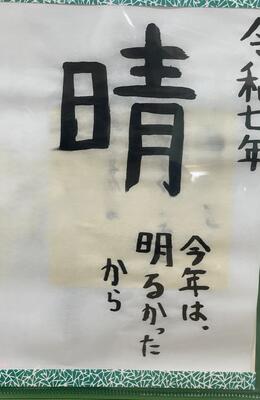 令和七年
晴
今年は、
明るかった
から